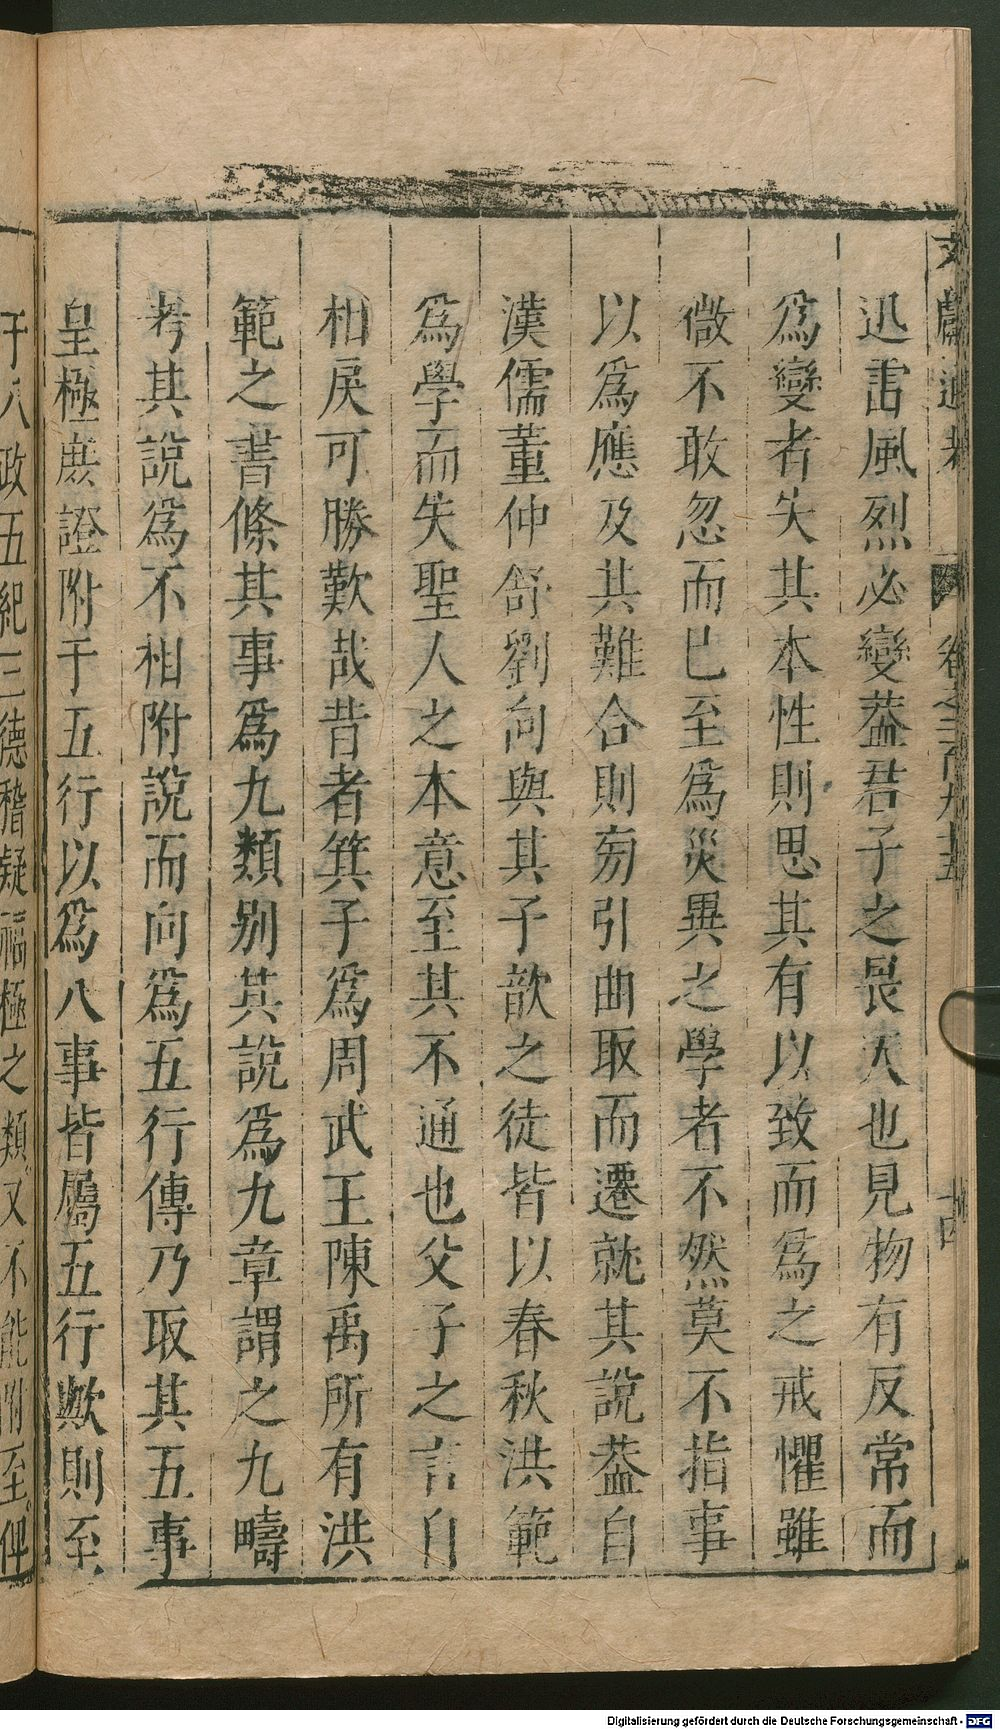 文獻通考 卷之二百九十五 十四
迅雷風烈必變葢君子之畏天也見物有反常而
爲變者失其本性則思其有以致而爲之戒懼雖
微不敢忽而巳至爲災異之學者不然莫不指事
以爲應及其難合則旁引曲取而遷就其說葢自
漢儒董仲舒劉向與其子歆之徒皆以春秋洪範
爲學而失聖人之本意至其不通也父子之言自
相戾可勝歎哉昔者箕子爲周武王陳禹所有洪
範之書條其事爲九類别其說爲九章謂之九疇
考其說爲不相附說而向爲五行傳乃取其五事
皇極庶證附于五行以爲八事皆屬五行歟則至
于八政五紀三德稽疑福極之類又不能附至俾
Digitalisierung gefördert durch die Deutsche Forschungsgemeinschaft - DFG